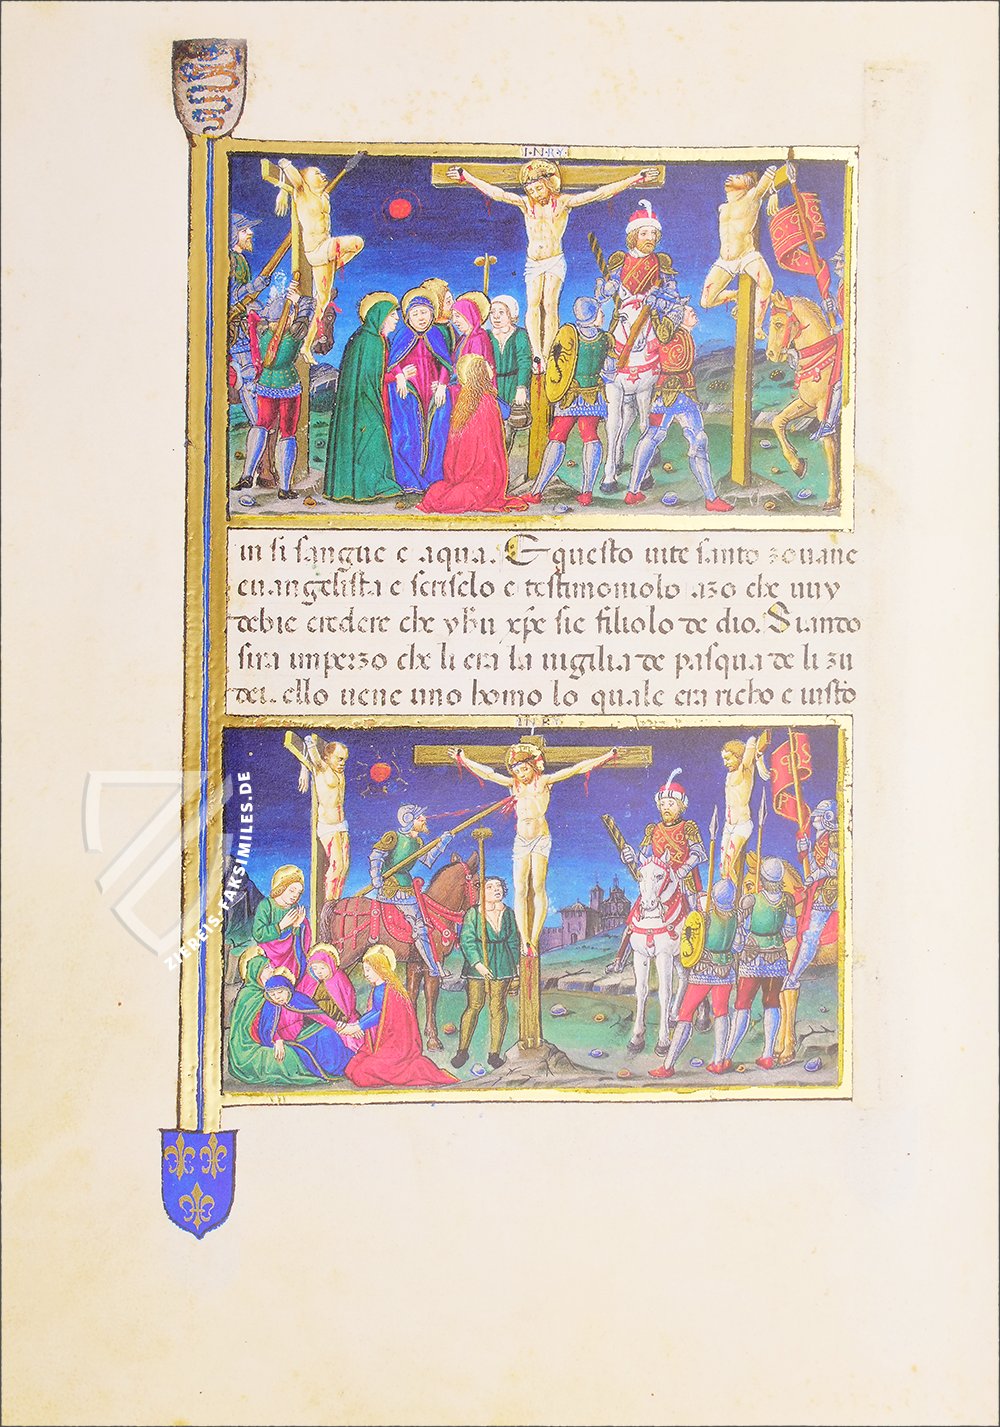 I·N·R·Y·
in si sangue e aqua. E questo vite santo zovane
evangelista e scriselo e testimoniolo azo che vuy
debie credere che yhu xpe sie filiolo de dio. Siando
sira imperzo che li era la vigilia de pasqua de li zu
dei. ello vene uno homo lo quale era richo e iusto
I·N·R·Y
ZIEREIS-FAKSIMILES.DE